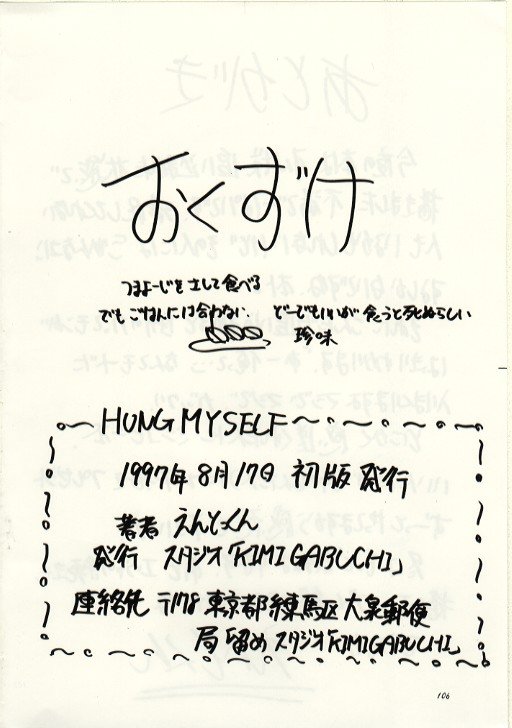 おくずけ
つまよーじをさして食べる
でもごはんには合わない.
どーでもいいが食うと死ぬらしい
珍味
HUNG MYSELF
1997年8月17日 初版発行
著者 えんとっくん
発行 スタジオ「KIMIGABUCHI」
連絡先 〒178 東京都練馬区大泉郵便
局留めスタジオ「KIMIGABUCHI」
106